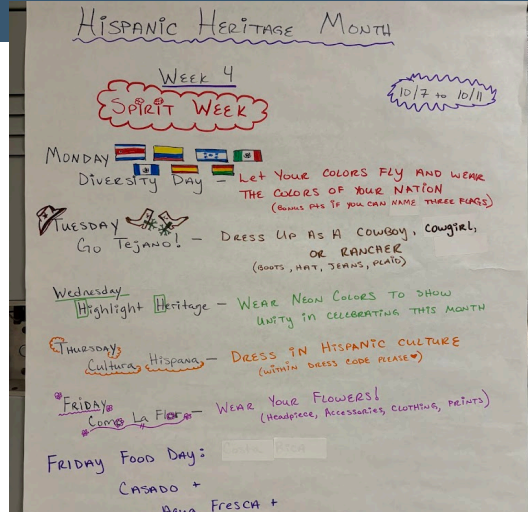 Hispanic Heritage Month
Week 4
Spirit Week
10/7 to 10/11
Monday
Diversity Day - Let Your Colors Fly and Wear
the Colors of Your Nation
(Bonus pts if you can name three flags)
Tuesday
Go Tejano! - Dress Up As A Cowboy, Cowgirl,
or Rancher
(Boots, Hat, Jeans, Plaid)
Wednesday
Highlight Heritage - Wear Neon Colors to Show
Unity in celebrating this month
Thursday
Cultura Hispana - Dress in Hispanic Culture
(within dress code please♥)
Friday
Como La Flor - Wear Your Flowers!
(Headpiece, Accessories, Clothing, Prints)
Friday Food Day:
Casado +
Agua Fresca +